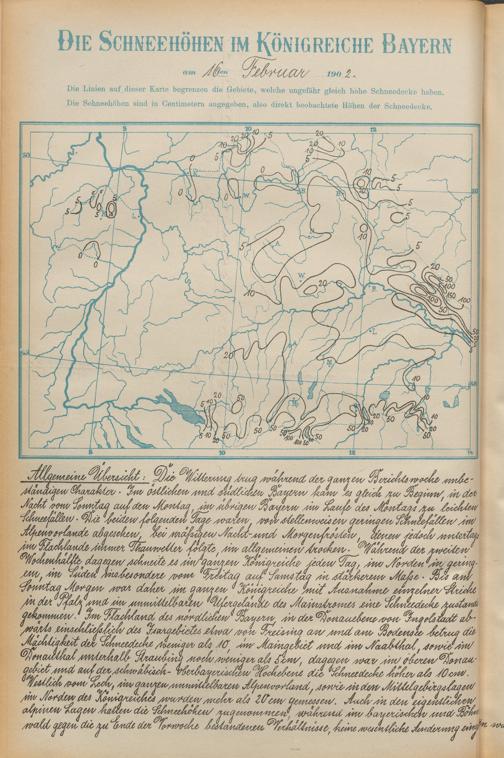 DIE SCHNEEHÖHEN IM KÖNIGREICHE BAYERN
am 16ten Februar 1902.
Die Linien auf dieser Karte begrenzen die Gebiete, welche ungefähr gleich hohe Schneedecke haben.
Die Schneehöhen sind in Centimetern angegeben, also direkt beobachtete Höhen der Schneedecke.
Allgemeine Übersicht: Die Witterung trug während der ganzen Berichtswoche unbe-
ständigen Charakter. Im östlichen und südlichen Bayern kam es gleich zu Beginn, in der
Nacht vom Sonntag auf den Montag, im übrigen Bayern im Laufe des Montags zu leichten
Schneefällen. Die beiden folgenden Tage waren, von stellenweisen geringen Schneefällen im
Alpenvorlande abgesehen, bei mäßigen Nacht- und Morgenfrösten, denen jedoch untertags
im Flachlande immer Thauwetter folgte, im allgemeinen trocken. Während der zweiten
Wochenhälfte dagegen schneite es im ganzen Königreiche jeden Tag, im Norden in gering-
em, im Süden insbesondere vom Freitag auf Samstag in stärkerem Maße. Bis am
Sonntag Morgen war daher im ganzen Königreiche mit Ausnahme einzelner Striche
in der Pfalz und im unmittelbaren Ufergelände des Mainstromes eine Schneedecke zustande
gekommen. Im Flachland des nördlichen Bayern, in der Donauebene von Ingolstadt ab-
wärts einschließlich des Isargebietes etwa von Freising an und am Bodensee betrug die
Mächtigkeit der Schneedecke weniger als 10, im Maingebiet und im Naabthal, sowie im
Donauthal unterhalb Straubing noch weniger als 5 cm, dagegen war im oberen Donau-
gebiet und auf der schwäbisch-oberbayerischen Hochebene die Schneedecke höher als 10 cm.
Westlich vom Lech, im ganzen unmittelbaren Alpenvorland, sowie in den Mittelgebirgslagen
im Norden des Königreiches wurden mehr als 20 cm gemessen. Auch in den eigentlichen
alpinen Lagen hatten die Schneehöhen zugenommen, während im bayerischen und Böhm
wald gegen die zu Ende der Vorwoche bestandenen Verhältnisse, keine wesentliche Änderung